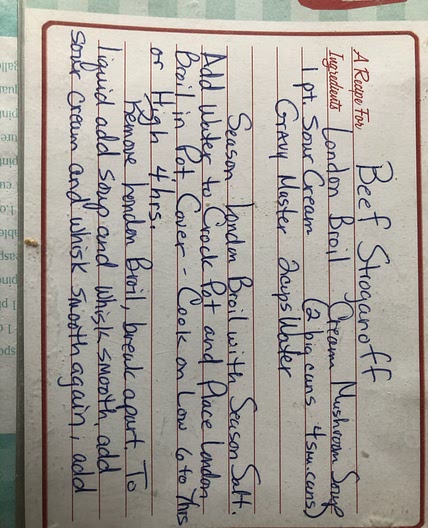 A Recipe For Beef Stroganoff
Ingredients London Broil Cream Mushroom Soup
1 pt. Sour Cream (2 big cans 4 sm. cans)
Gravy Master 2 cups Water
Season London Broil with Season Salt.
Add Water to Crock Pot and Place London
Broil in Pot, Cover - Cook on Low 6 to 7 hrs
or High 4 hrs.
Remove London Broil, break apart. To
liquid add soup and whisk smooth, add
sour cream and whisk smooth again, add